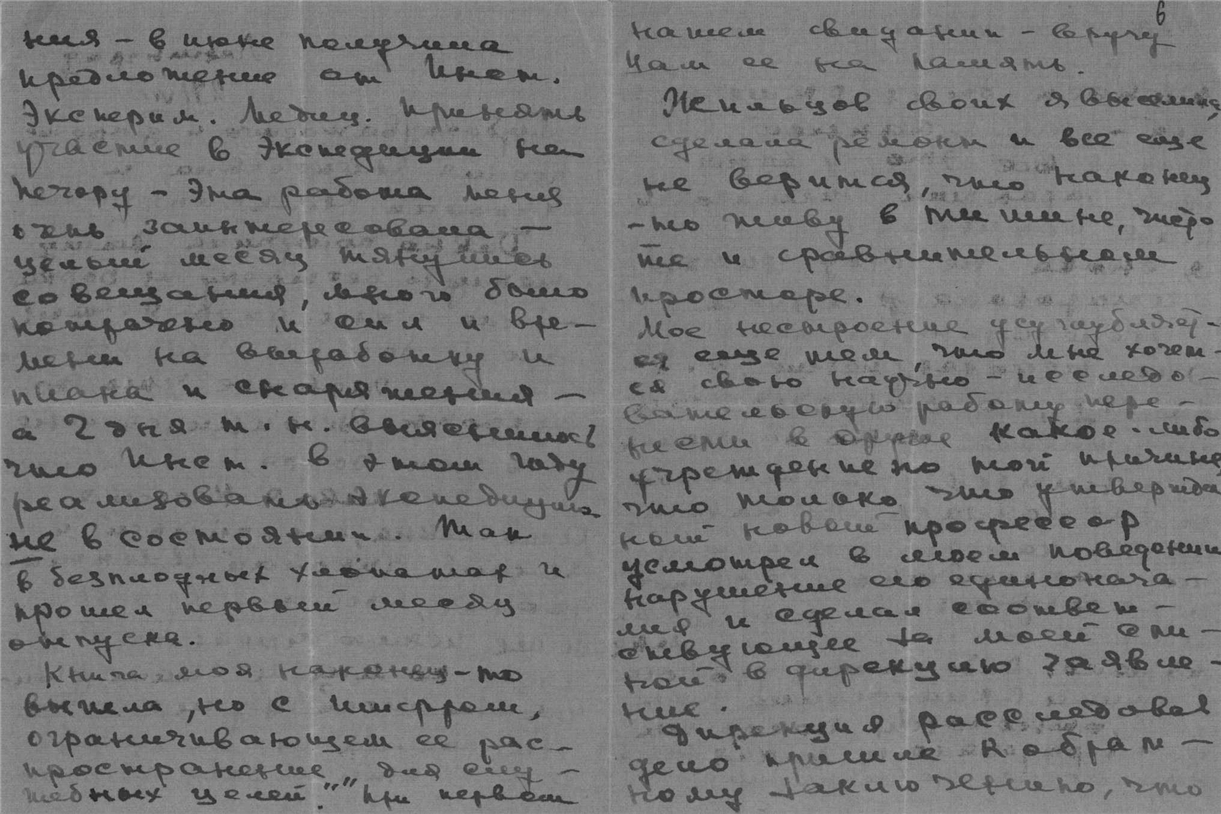 ния – в июне получила
предложение от Инст.
Эксперим. Медиц. принять
участие в экспедиции на
Печору – Эта работа меня
очень заинтересовала –
целый месяц тянулись
совещания, много было
потрачено и сил и вре-
мени на выработку и
плана и снаряжения –
а 2 дня т. н. выяснилось
что Инст. в этом году
реализовать экспедицию
не в состоянии. Так
в безплодных хлопотах и
прошел первый месяц
отпуска.
Книга моя наконец-то
вышла, но с шифром,
ограничивающем ее рас-
пространение „для слу-
жебных целей." При первом
6
нашем свидании – вручу
Вам ее на память.
Жильцов своих я выселила,
сделала ремонт и все еще
не верится, что наконец
-то живу в тишине, чисто
те и сравнительном
просторе.
Мое настроение усугубляет-
ся еще тем, что мне хочет-
ся свою научно-исследо-
вательскую работу пере-
нести в другое какое-либо
учреждение по той причине
что только что утвержден
ный новый профессор
усмотрел в моем поведении
нарушение его единонача-
лия и сделал соответ-
ствующее за моей спи-
ной в дирекцию заявле-
ние.
Дирекция расследовав
дело пришла к обрат-
ному заключению, что